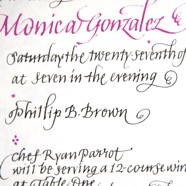 Monica Gonzalez
Saturday the twenty seventh of
at seven in the evening
Phillip B. Brown
Chef Ryan Parrot
will be serving a 12-course win
at Table One